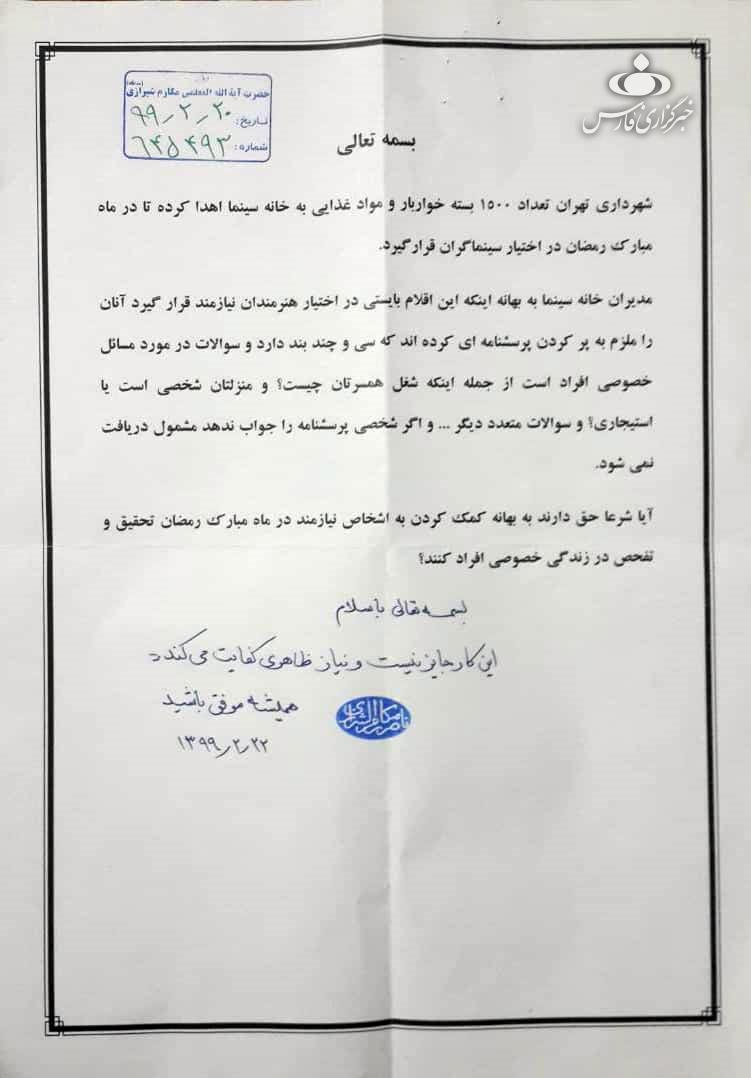 خبرگزاری فارس
حضرت آیة الله العظمی مکارم شیرازی
تاریخ: ۹۹/۲/۲۰
شماره: ۶۴۵۴۹۳
بسمه تعالی
شهرداری تهران تعداد ۱۵۰۰ بسته خواربار و مواد غذایی به خانه سینما اهدا کرده تا در ماه
مبارک رمضان در اختیار سینماگران قرارگیرد.
مدیران خانه سینما به بهانه اینکه این اقلام بایستی در اختیار هنرمندان نیازمند قرار گیرد آنان
را ملزم به پر کردن پرسشنامه ای کرده اند که سی و چند بند دارد و سوالات در مورد مسائل
خصوصی افراد است از جمله اینکه شغل همسرتان چیست؟ و منزلتان شخصی است یا
استیجاری؟ و سوالات متعدد دیگر ... و اگر شخصی پرسشنامه را جواب ندهد مشمول دریافت
نمی شود.
آیا شرعا حق دارند به بهانه کمک کردن به اشخاص نیازمند در ماه مبارک رمضان تحقیق و
تفحص در زندگی خصوصی افراد کنند؟
بسمه تعالی باسلام
این کار جایز نیست و نیاز ظاهری کفایت می کند
همیشه موفق باشید
ناصر مکارم الشیرازی
۱۳۹۹/۲/۲۲